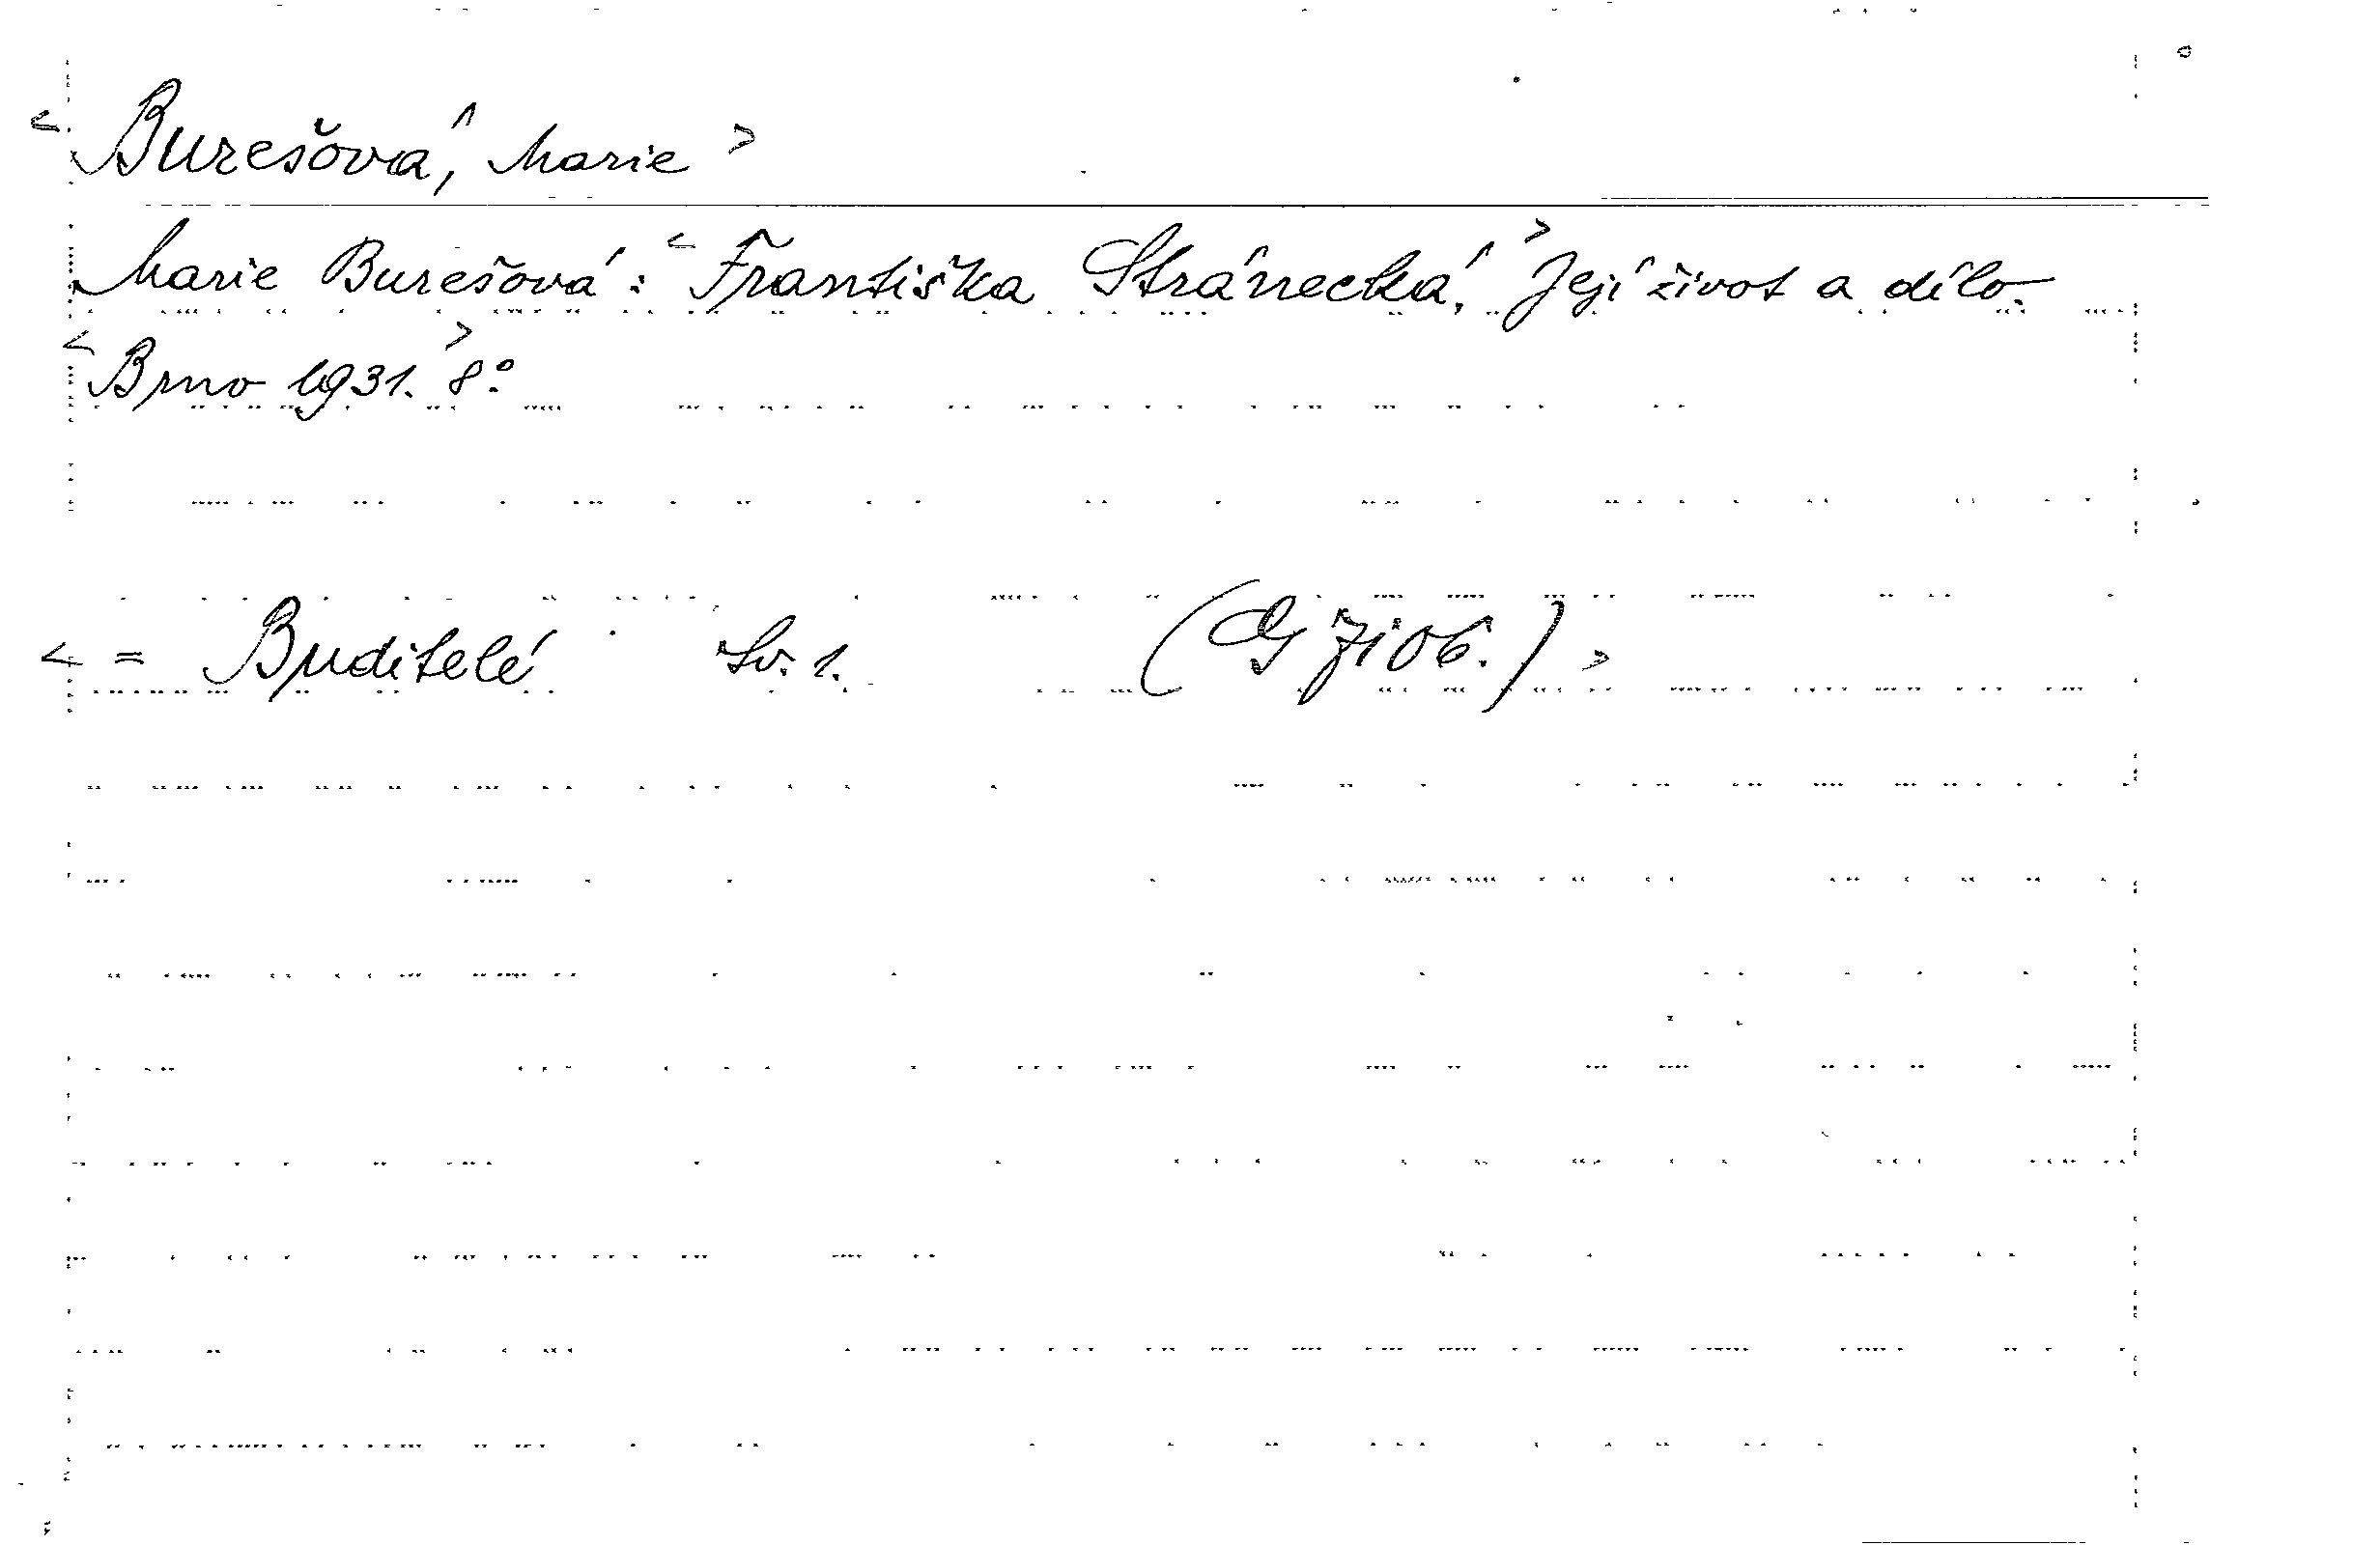 <Burešová, Marie>
Marie Burešová: <Františka Stránecká.> Její život a dílo.
<Brno 1931.> 8°
<= Buditelé Sv. 1. >